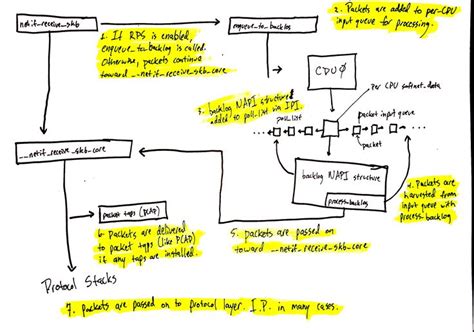 netif_receive_skb
enqueue_to_backlog
2. Packets are added to per-CPU
input queue for processing.
1. If RPS is enabled,
enqueue_to_backlog is called.
Otherwise, packets continue
toward __netif_receive_skb_core
CPU0
per CPU softnet_data
3. backlog NAPI structure
added to poll_list via IPI.
poll_list
packet input queue
packet
__netif_receive_skb_core
backlog NAPI structure
process_backlog
4. Packets are
harvested from
input queue with
process_backlog
packet taps (PCAP)
6. Packets are delivered
to packet taps (like PCAP)
if any taps are installed.
5. packets are passed on
toward __netif_receive_skb_core
Protocol Stacks
7. Packets are passed on to protocol layer. I.P. in many cases.